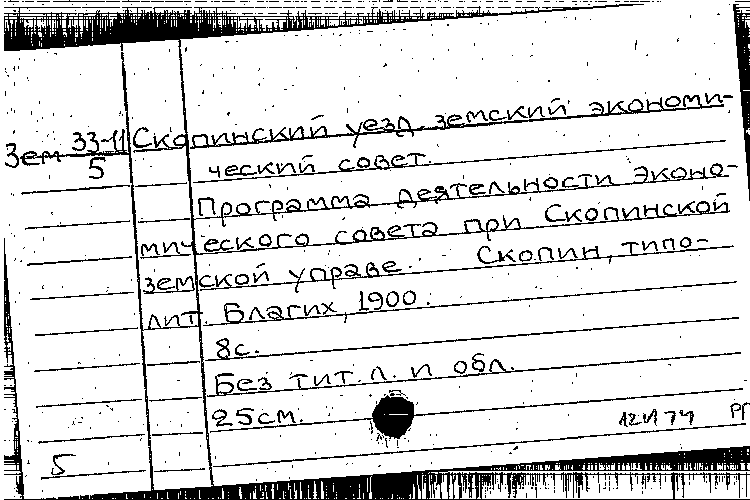 Зем 33-11/5 Скопинский уезд. земский экономи-
ческий совет.
Программа деятельности Эконо-
мического совета при Скопинской
земской управе. Скопин, типо-
лит. Благих, 1900.
8с.
Без тит. л. и обл.
25см.
5